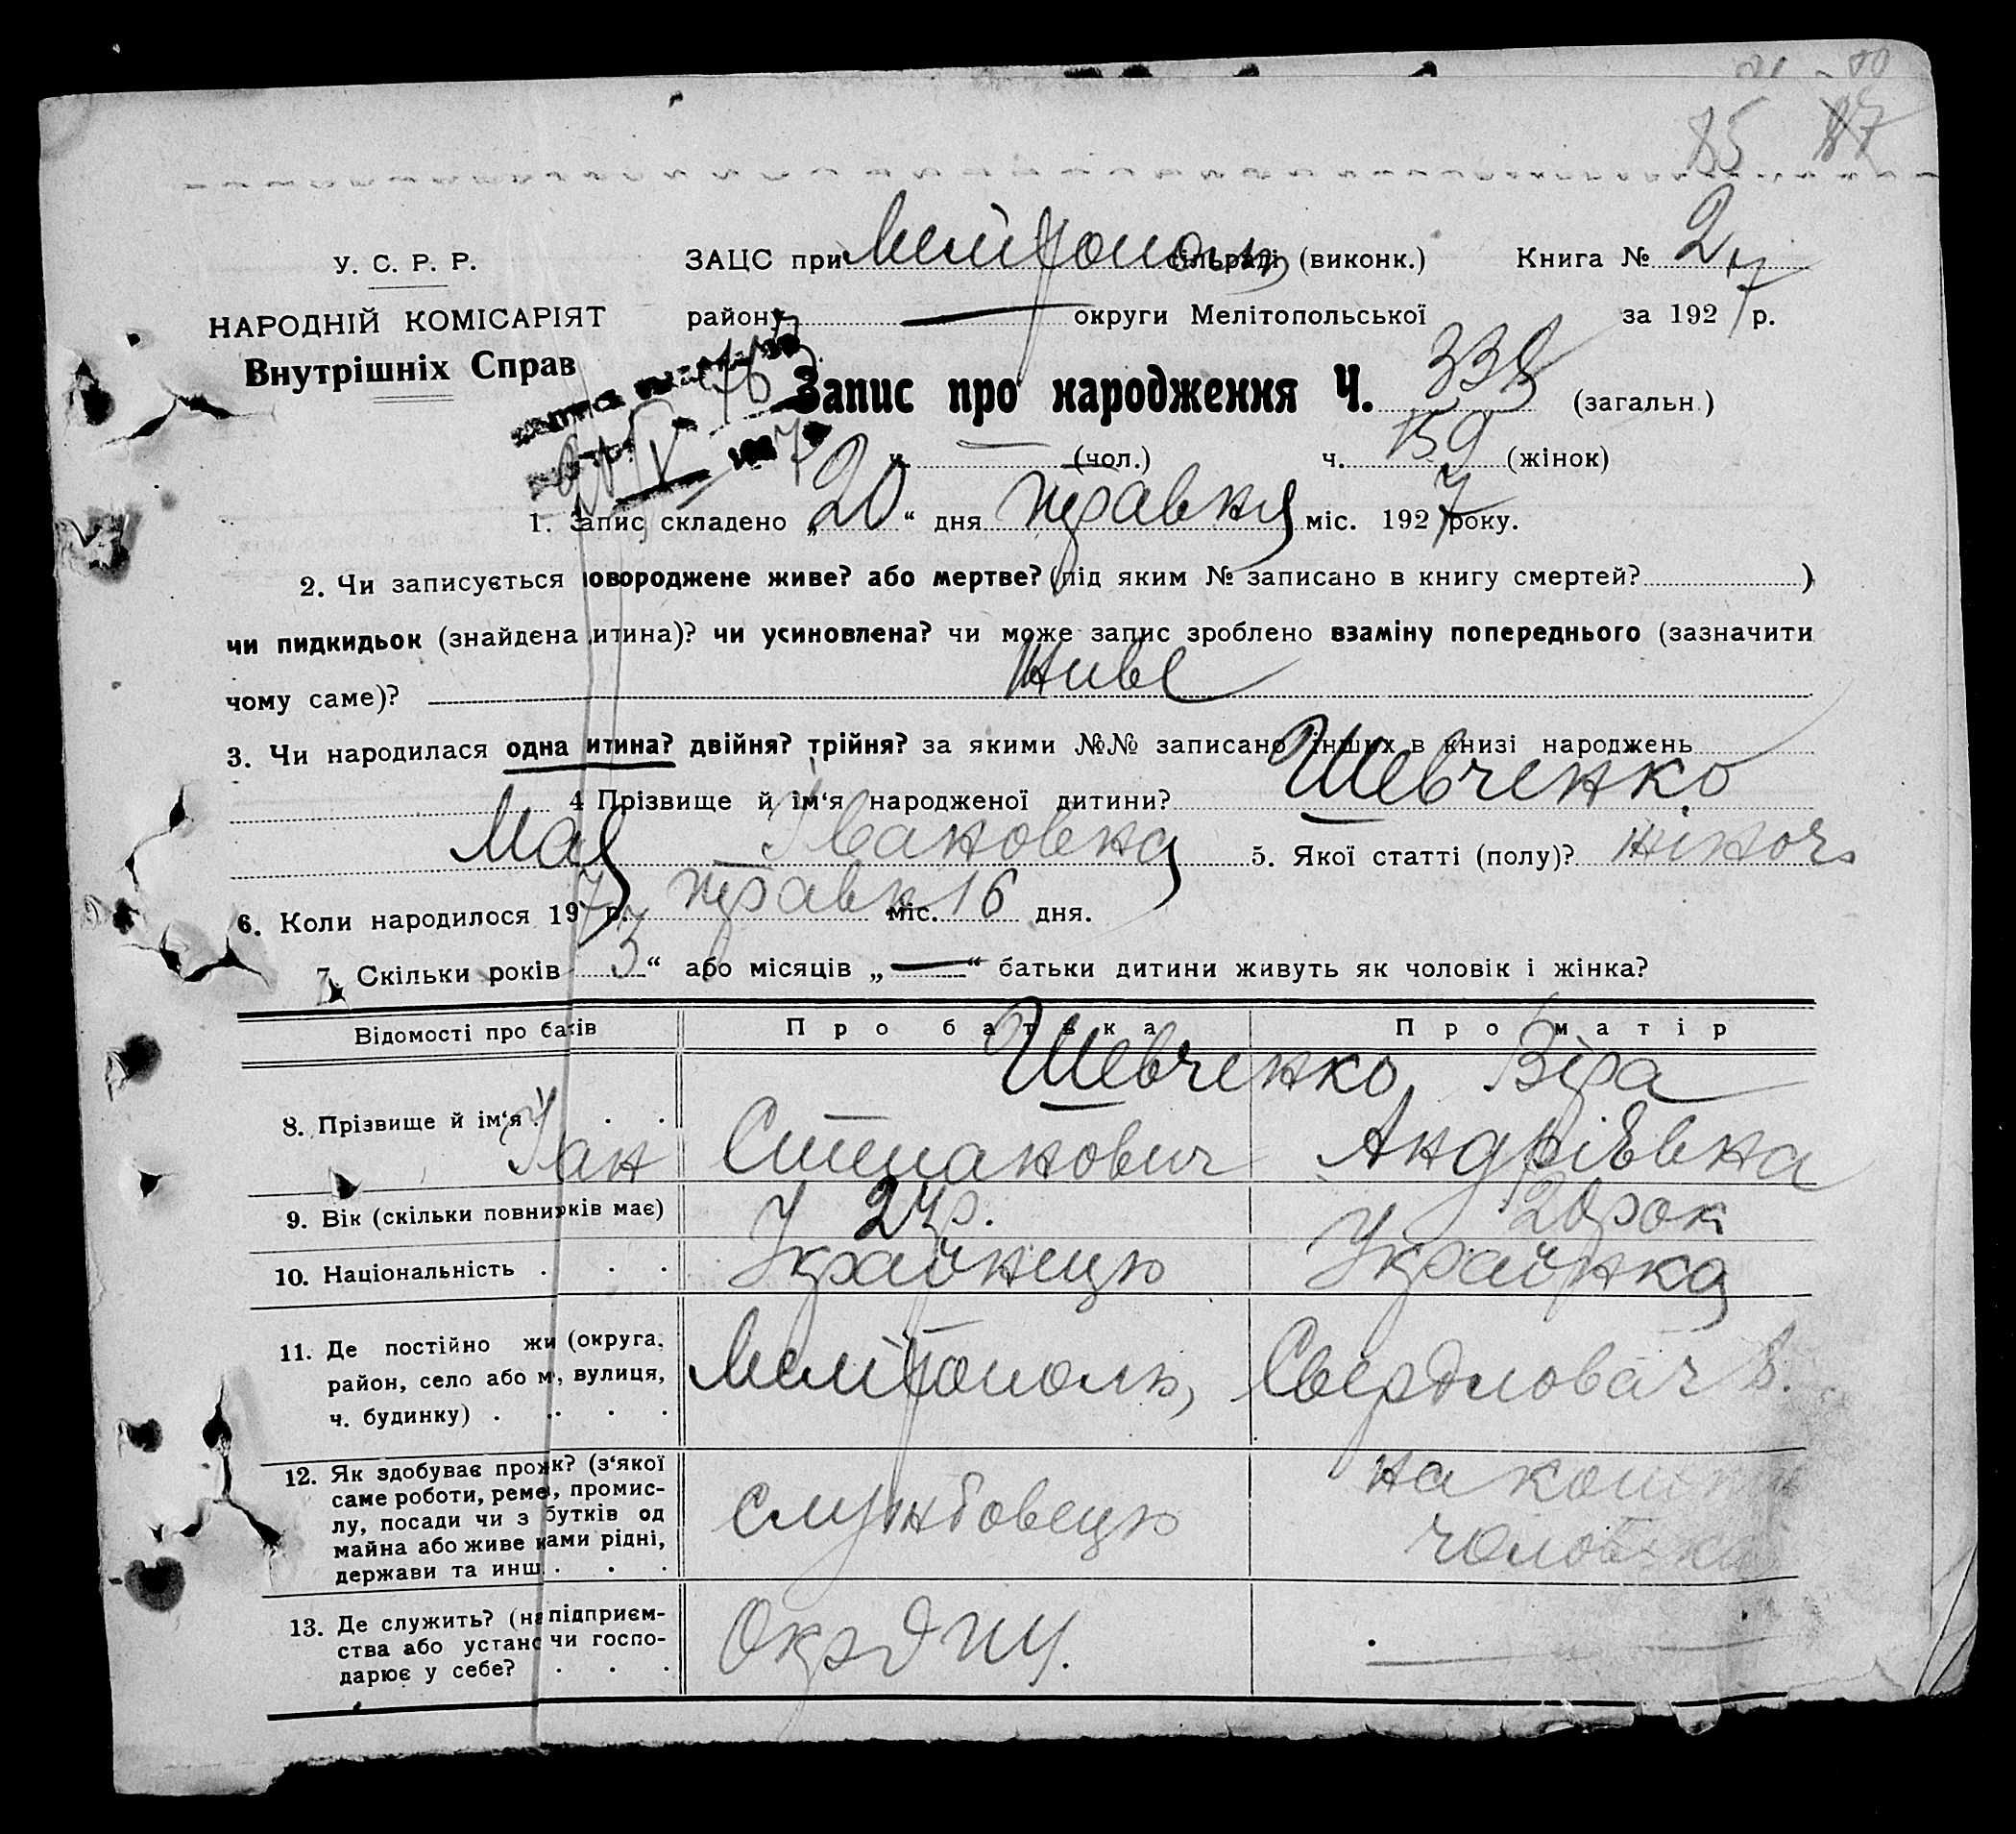 85 87
У. С. Р. Р.
ЗАЦС при Мелітополь сільраді (виконк.) Книга № 2
НАРОДНІЙ КОМІСАРІЯТ
району — округи Мелітопольської за 1927 р.
Внутрішніх Справ
Запис про народження Ч. 338 (загальн.)
ч. — (чол.) ч. 159 (жінок)
1. Запис складено „20“ дня травня міс. 1927 року.
2. Чи записується новороджене живе? або мертве? (під яким № записано в книгу смертей? )
чи пидкидьок (знайдена итина)? чи усиновлена? чи може запис зроблено взаміну попереднього (зазначити
чому саме)? живе
3. Чи народилася одна итина? двійня? трійня? за якими №№ записано інших в книзі народжень
4 Прізвище й ім‘я народженої дитини? Шевченко
Мая Івановна 5. Якої статті (полу)? жіноч.
6. Коли народилося 197 р. травн міс. 16 дня.
7. Скільки років 3“ або місяців „—“ батьки дитини живуть як чоловік і жінка?
Відомості про батів Про батька Про матір
Шевченко Віра
8. Прізвище й ім‘я . . .
Іван Степанович Андріївна
9. Вік (скільки повних ків має) 24 р. 20 рок
10. Національність . . . Українець Українка
11. Де постійно жи (округа,
район, село або м, вулиця, Мелітополь, Свердлова ч 8.
ч. будинку) . . . .
12. Як здобуває прожк? (з‘якої на кошти
саме роботи, реме, промис-
лу, посади чи з бутків од службовець
майна або живе ками рідні, чоловіка
держави та инш. . .
13. Де служить? (на підприєм-
ства або устано чи госпо- —
дарює у себе? . . .